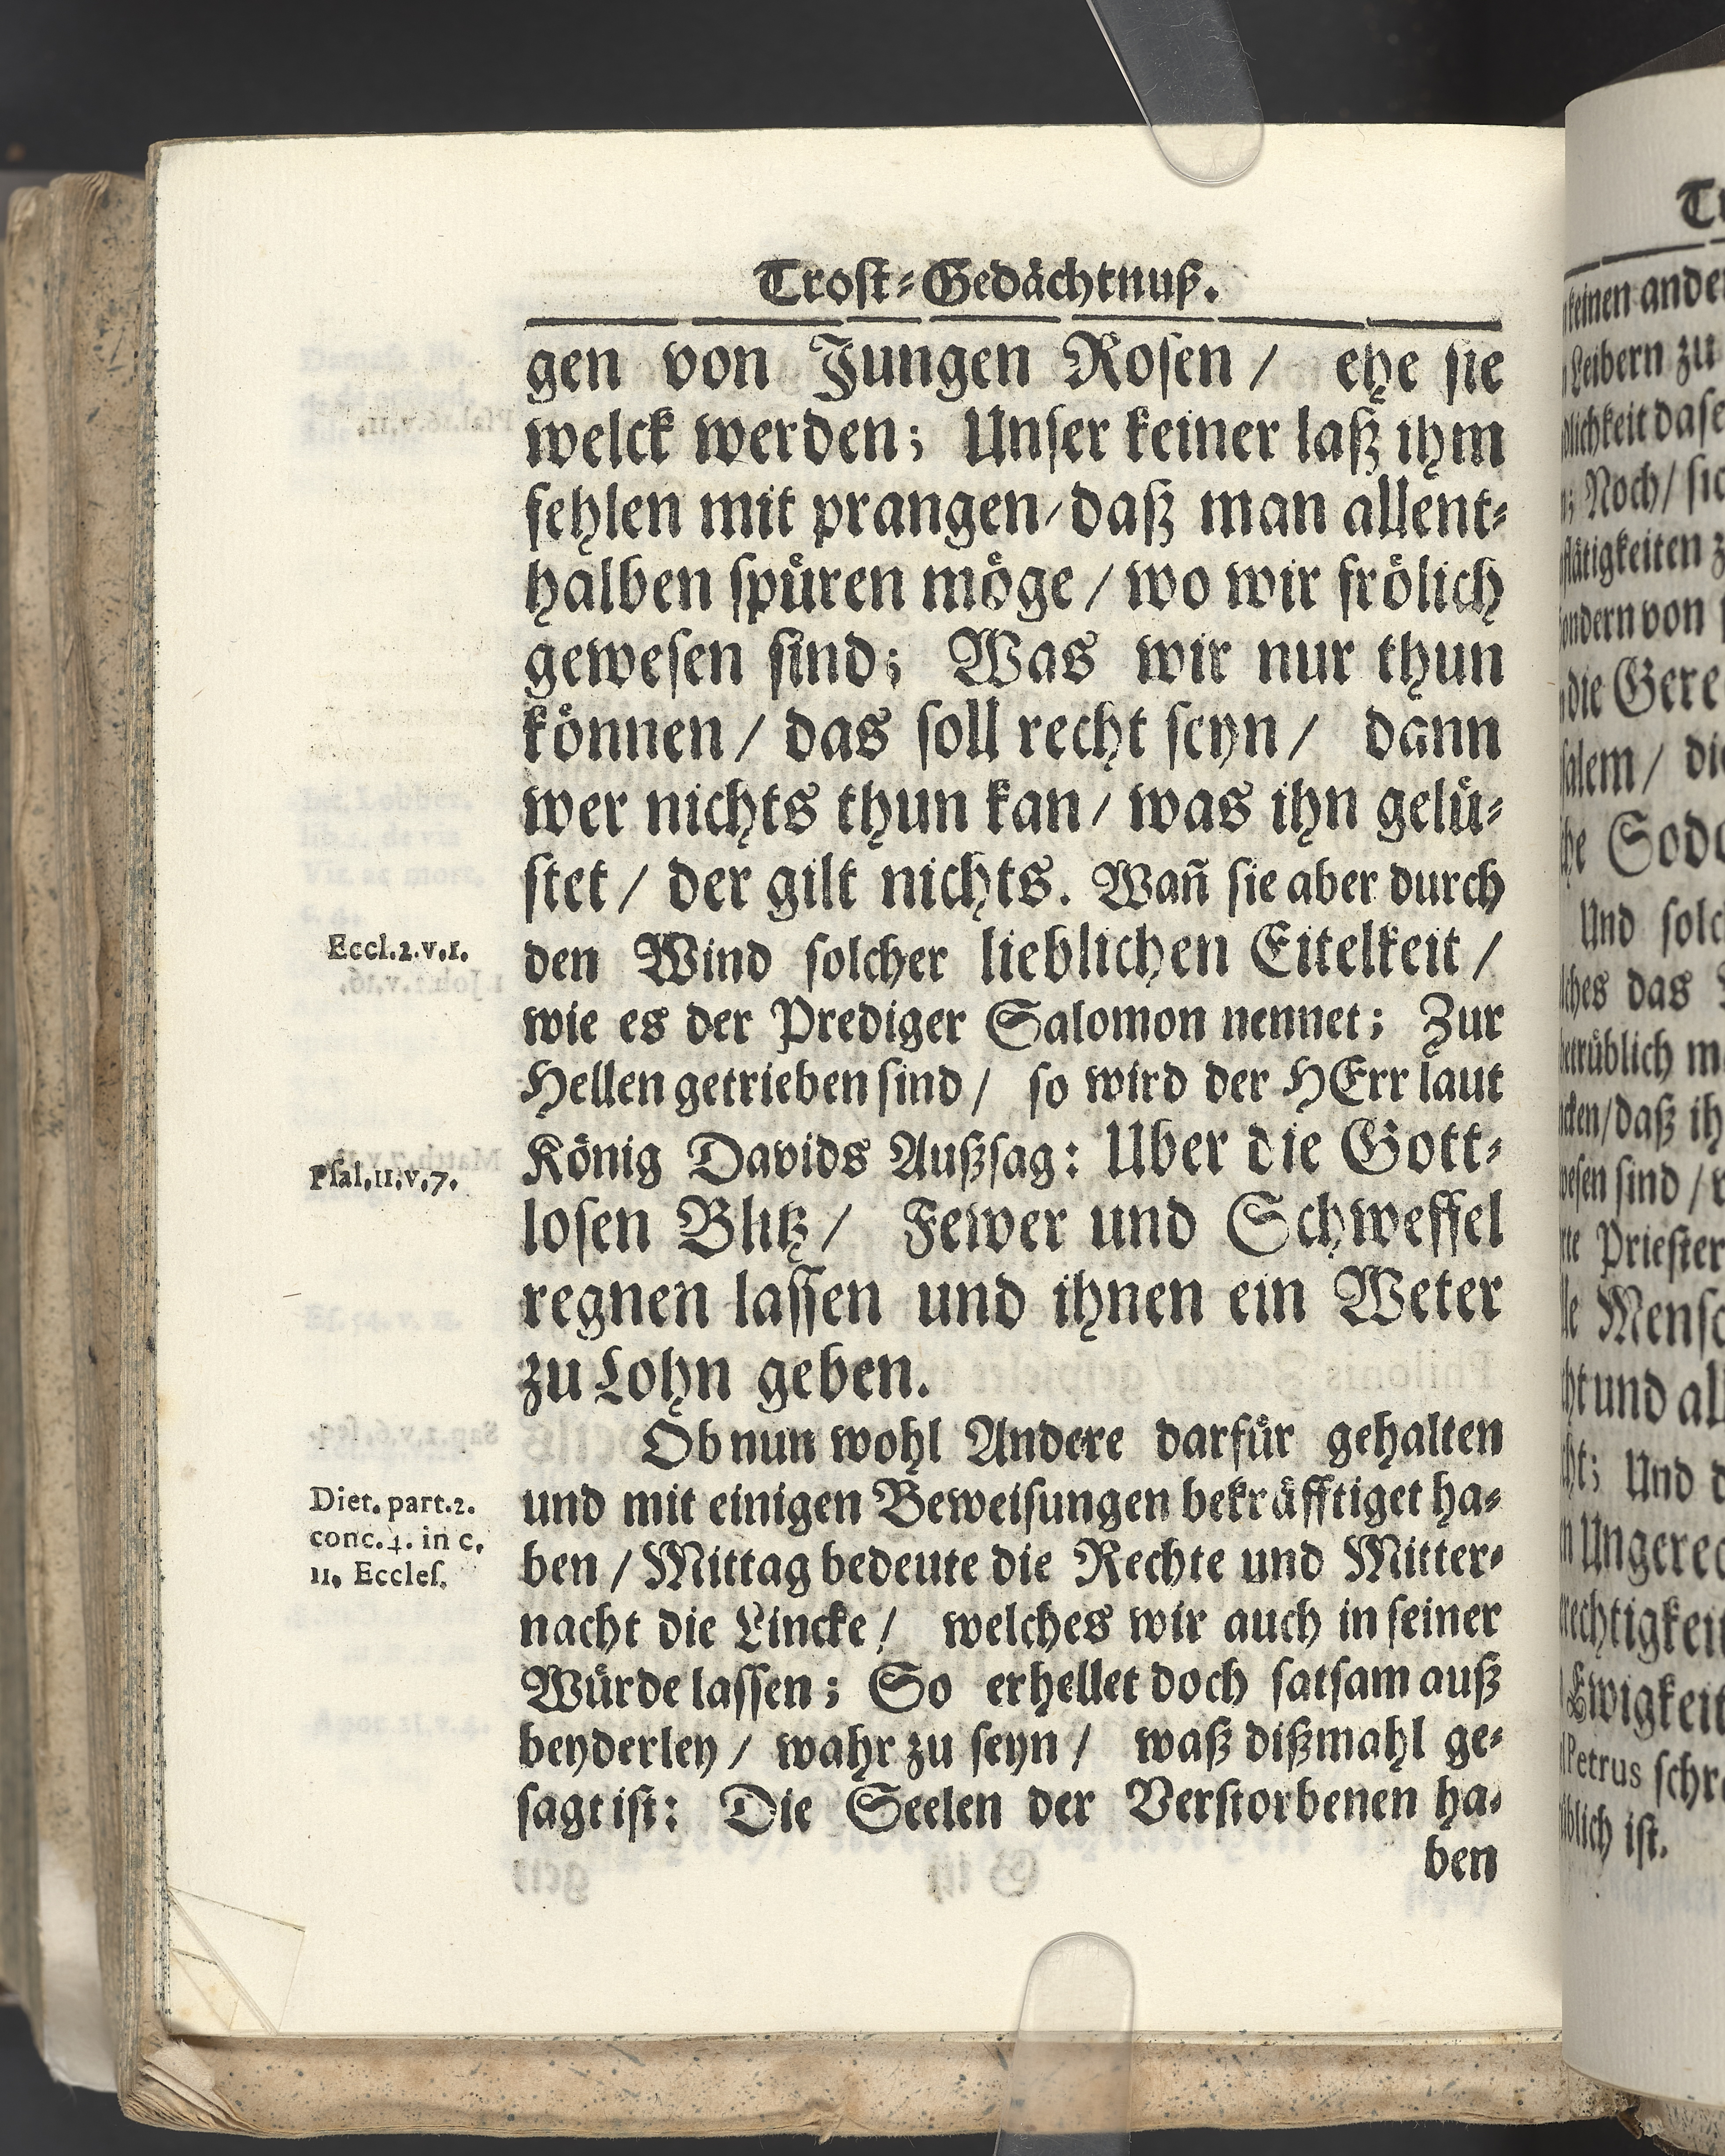 Trost-Gedächtnuß.
gen von Jungen Rosen / ehe sie
welck werden; Unser keiner laß ihm
fehlen mit prangen/ daß man allent-
halben spüren möge / wo wir frölich
gewesen sind; Was wir nur thun
können / das soll recht seyn / dann
wer nichts thun kan / was ihn gelü-
stet / der gilt nichts. Wañ sie aber durch
Eccl.2.v.1.
den Wind solcher lieblichen Eitelkeit /
wie es der Prediger Salomon nennet; Zur
Hellen getrieben sind / so wird der HErr laut
Psal.11.v.7.
König Davids Außsag: Uber die Gott-
losen Blitz / Fewer und Schweffel
regnen lassen und ihnen ein Weter
zu Lohn geben.
Ob nun wohl Andere darfür gehalten
Diet. part.2.
conc.4. in c.
11. Eccles.
und mit einigen Beweisungen bekräfftiget ha-
ben / Mittag bedeute die Rechte und Mitter-
nacht die Lincke / welches wir auch in seiner
Würde lassen; So erhellet doch satsam auß
beyderley / wahr zu seyn / waß dißmahl ge-
sagt ist: Die Seelen der Verstorbenen ha-
ben
keinen
Leibern zu
Noch /
ondern von
die
alem /
Und
ches das
Priester
und
Und
Petrus
ist.